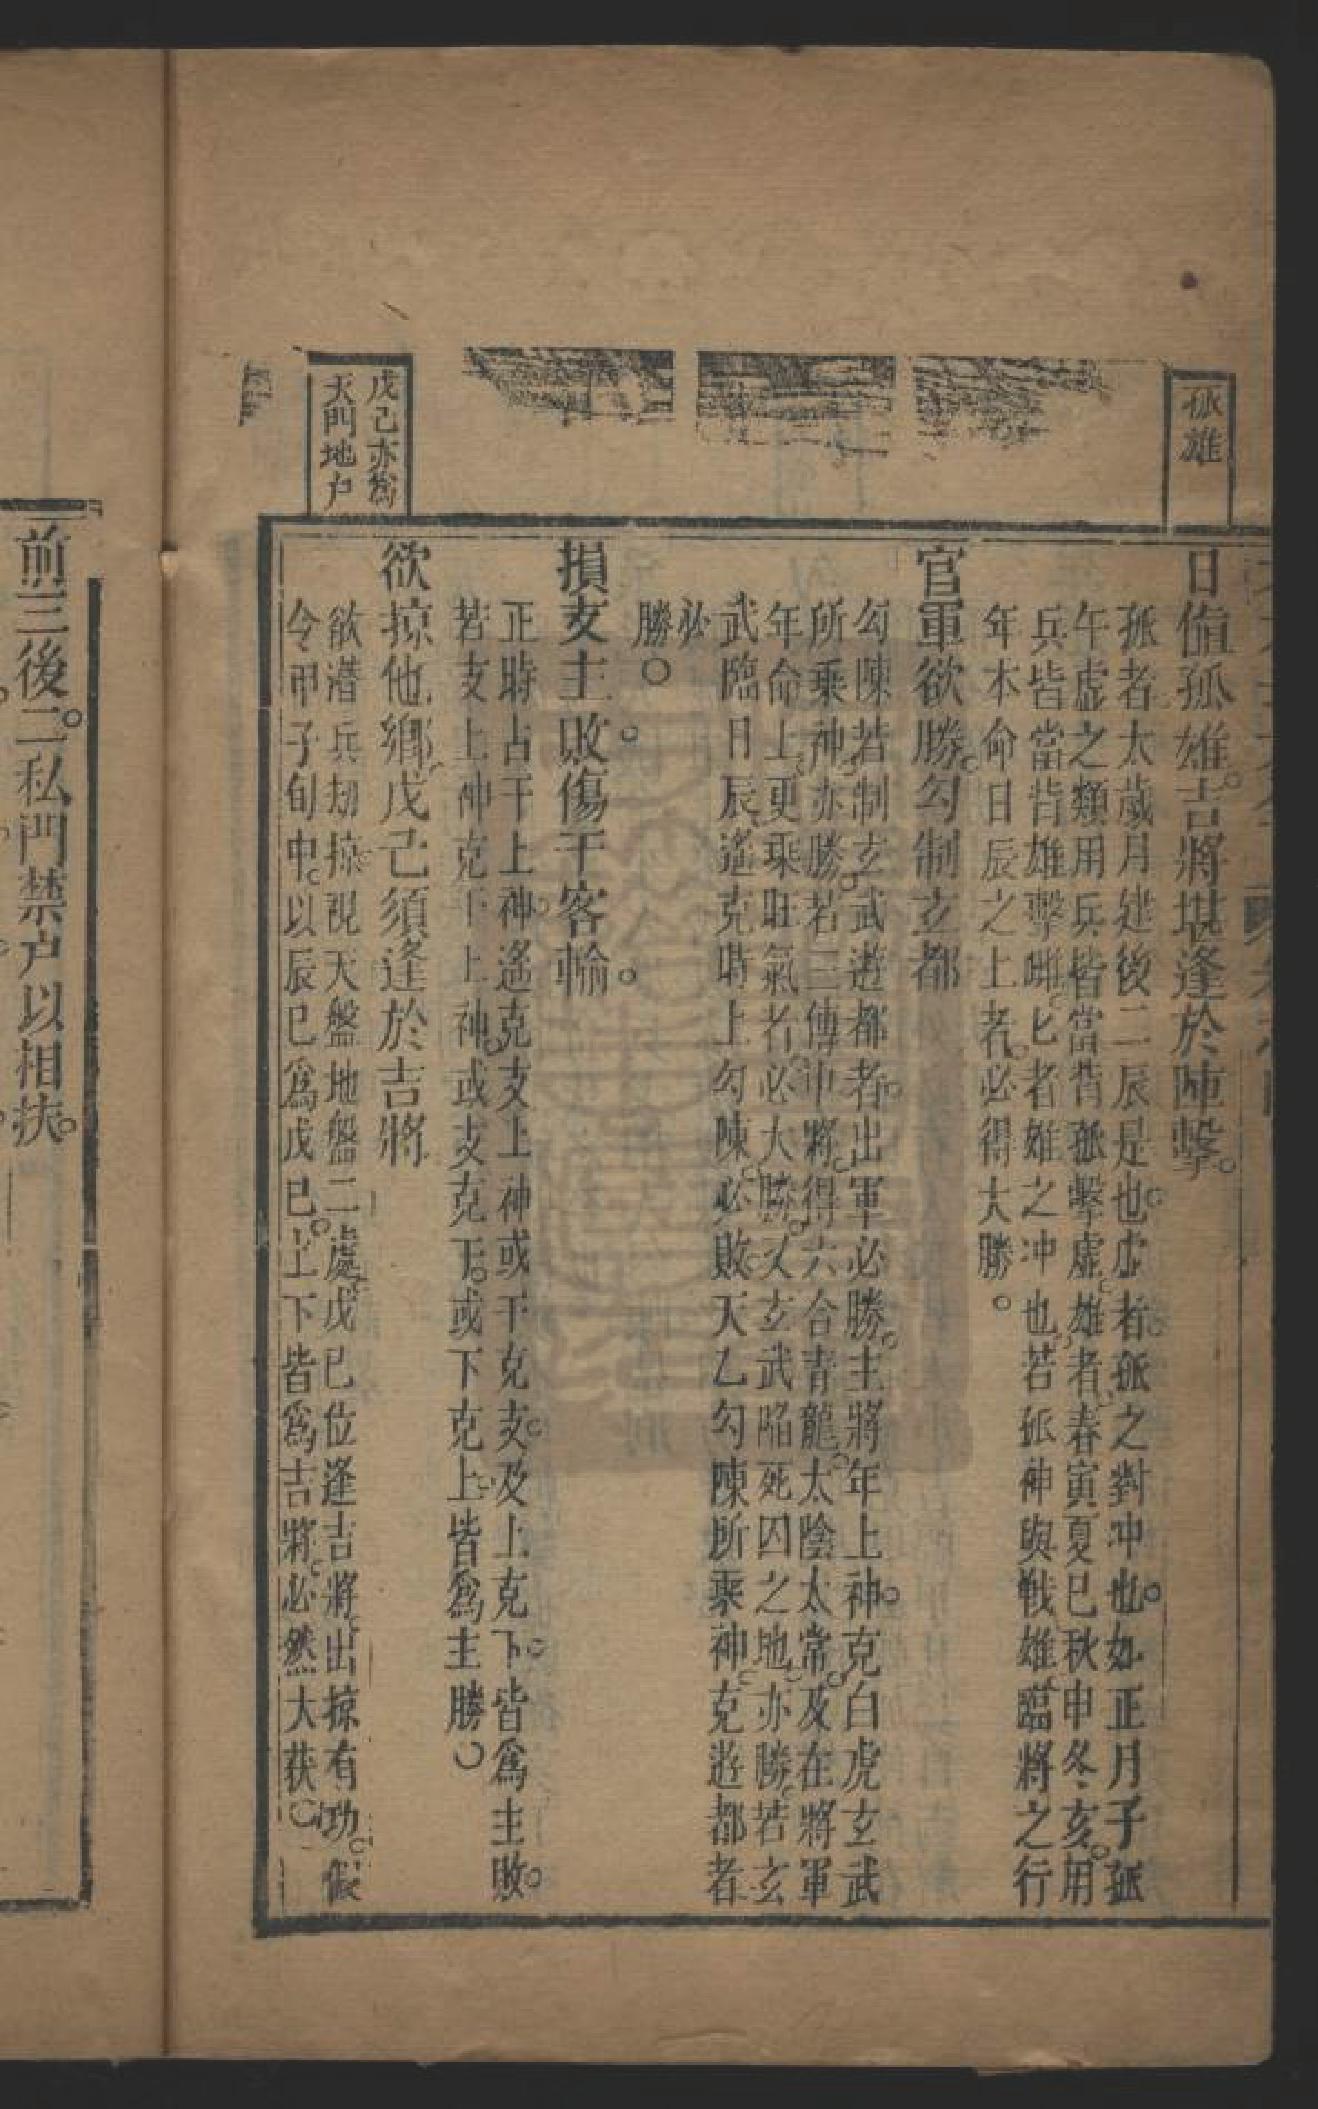 孤雄
日值孤雄吉將堪逢於陣擊。
孤者太歲月建後二辰是也。虛者孤之對冲也。如正月子孤
午虛之類用兵皆當背孤擊虛。雄者春寅夏巳秋申冬亥。用
兵皆當背雄擊雌。雌者雄之冲也。若孤神與戰雄臨將之行
年本命日辰之上者。必得大勝。
官軍欲勝。勾制玄都
勾陳若制玄武遊都者。出軍必勝。主將年上神。克白虎玄武
所乘神。亦勝。若三傳中將。得六合青龍。太陰太常。及在將軍
年命上。更乘旺氣者。必大勝。又玄武陷死囚之地。亦勝。若玄
武臨日辰遙克時上勾陳。必敗天乙勾陳所乘神。克遊都者
必
勝。
損支主敗。傷干客輸。
正時占干上神。遙克支上神或干克支。及上克下。皆爲主敗。
若支上神克干上神。或支克干。或下克上。皆爲主勝。
戊己亦爲
天門地户
欲掠他鄉。戊己須逢於吉將
欲潛兵刼掠。視天盤地盤二處。戊己位逢吉將。出掠有功。假
令甲子旬中。以辰巳爲戊己。上下皆爲吉將。必然大获。
前三後二。私門禁户以相扶。